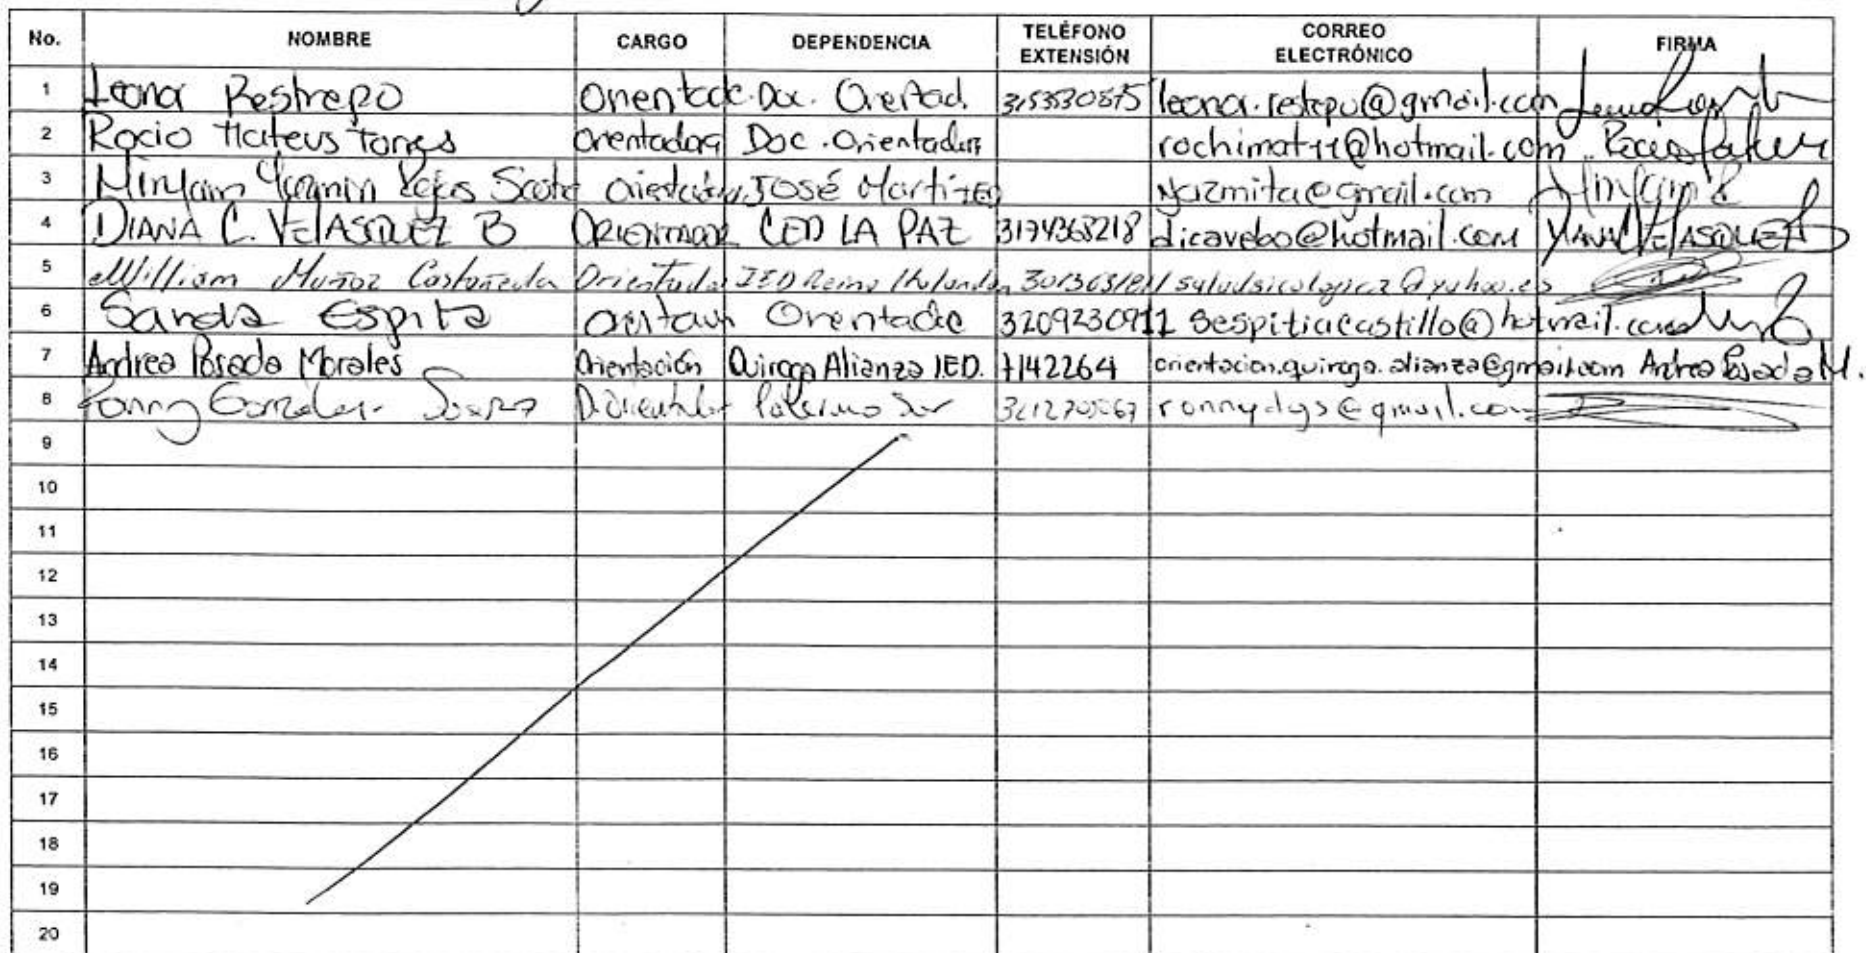 No. NOMBRE CARGO DEPENDENCIA TELÉFONO EXTENSIÓN CORREO ELECTRÓNICO FIRMA
1 Leonor Restrepo Doc. Orientad.
2 Rocio Mateus Torres Orientadora Doc. Orientadora rochimat11@hotmail.com
3 Yazmin José Martí IED yazmita@gmail.com
4 DIANA C. VELASQUEZ B ORIENTADOR CED LA PAZ 3174368218 dicavebo@hotmail.com DIANA C VELASQUEZ B
5 William Muñoz Castañeda Orientador IED Reino Holanda saludsicologica@yahoo.es
6 Sandra Espitia 3209230911 sespitiacastillo@hotmail.com
7 Andrea Posada Morales Orientación Quiroga Alianza I.E.D. 7142264 orientacion.quiroga.alianza@gmail.com Andrea Posada M.
8 Ronny Gonzalez Suarez D. Orientador Palermo Sur ronnydgs@gmail.com
9
10
11
12
13
14
15
16
17
18
19
20